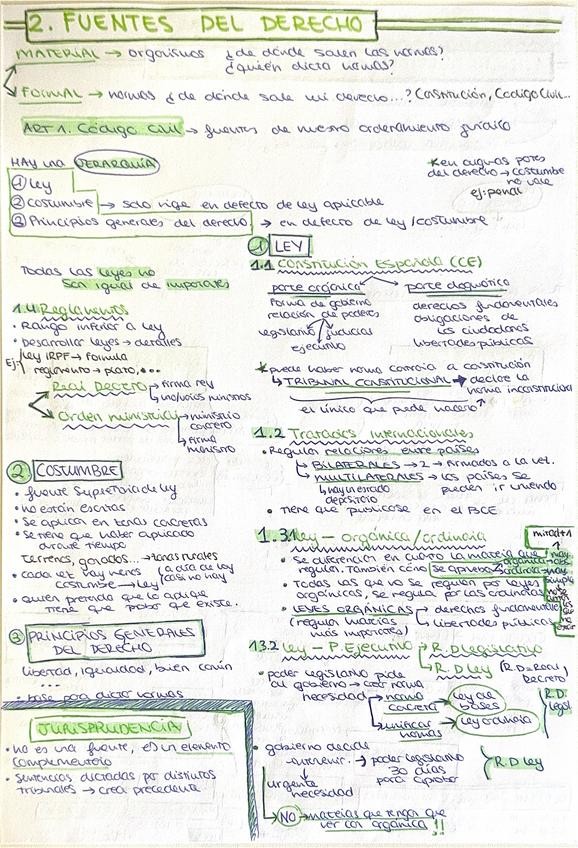 2. FUENTES DEL DERECHO
MATERIAL → organismos ¿de dónde salen las normas?
¿quién dicta normas?
FORMAL → normas ¿de dónde sale mi derecho...? Constitución, Código Civil...
ART 1. Código Civil → fuentes de nuestro ordenamiento jurídico
HAY una JERARQUÍA
① ley
② costumbre → solo rige en defecto de ley aplicable
③ Principios generales del derecho → en defecto de ley/costumbre
*en algunas partes
del derecho → costumbre
no vale
ej: penal
Todas las leyes no
son igual de importantes
1.4 Reglamentos
• Rango inferior a ley
• Desarrollar leyes → detalles
Ej: ley IRPF → fórmula
reglamento → plazo, ...
Real Decreto → firma rey
Orden ministerial → ministerio
concreto
↳ firma
ministro
② COSTUMBRE
• fuente supletoria de ley
• no están escritas
• Se aplican en zonas concretas
• Se tiene que haber aplicado
durante tiempo
Terrenos, ganados... → zonas rurales
• cada vez hay menos
costumbre → ley
(a día de hoy
casi no hay)
• quien pretenda que le aplique
tiene que probar que existe.
③ PRINCIPIOS GENERALES
DEL DERECHO
libertad, igualdad, bien común
...
• base para dictar normas
JURISPRUDENCIA
• no es una fuente, es un elemento
complementario
• Sentencias dictadas por distintos
tribunales → crea precedente
① LEY
1.1 CONSTITUCIÓN ESPAÑOLA (CE)
parte orgánica
forma de gobierno
relación de poderes
legislativo judicial
ejecutivo
parte dogmática
derechos fundamentales
obligaciones de
los ciudadanos
libertades públicas
*puede haber norma contraria a constitución
↳ TRIBUNAL CONSTITUCIONAL → declare la
norma inconstitucional
el único que puede hacerlo
1.2 Tratados internacionales
• Regular relaciones entre países
↳ BILATERALES → 2 → firmados a la vez.
↳ MULTILATERALES → los países se
pueden ir uniendo
↳ hay un estado
depositario
• tiene que publicarse en el BOE
1.3.1 ley - orgánica/ordinaria
mitad+1
• se diferencian en cuanto la materia que
regulan. También cómo se aprueba
• Todas las que no se regulen por leyes
orgánicas, se regula por las ordinarias
• LEYES ORGÁNICAS → derechos fundamentales
(regulan materias
más importantes)
↳ libertades públicas
1.3.2 ley - P. Ejecutivo → R.D legislativo
↳ R.D ley (R.D = Real
Decreto)
• poder legislativo pide
al gobierno → crear norma
necesidad → norma
concreta → ley de
bases
unificar
normas → ley ordinaria
R.D
legisl
• gobierno decide
intervenir → poder legislativo
30 días
para aprobar
R.D ley
urgente
necesidad
NO → materias que tengan que
ver con orgánica!!